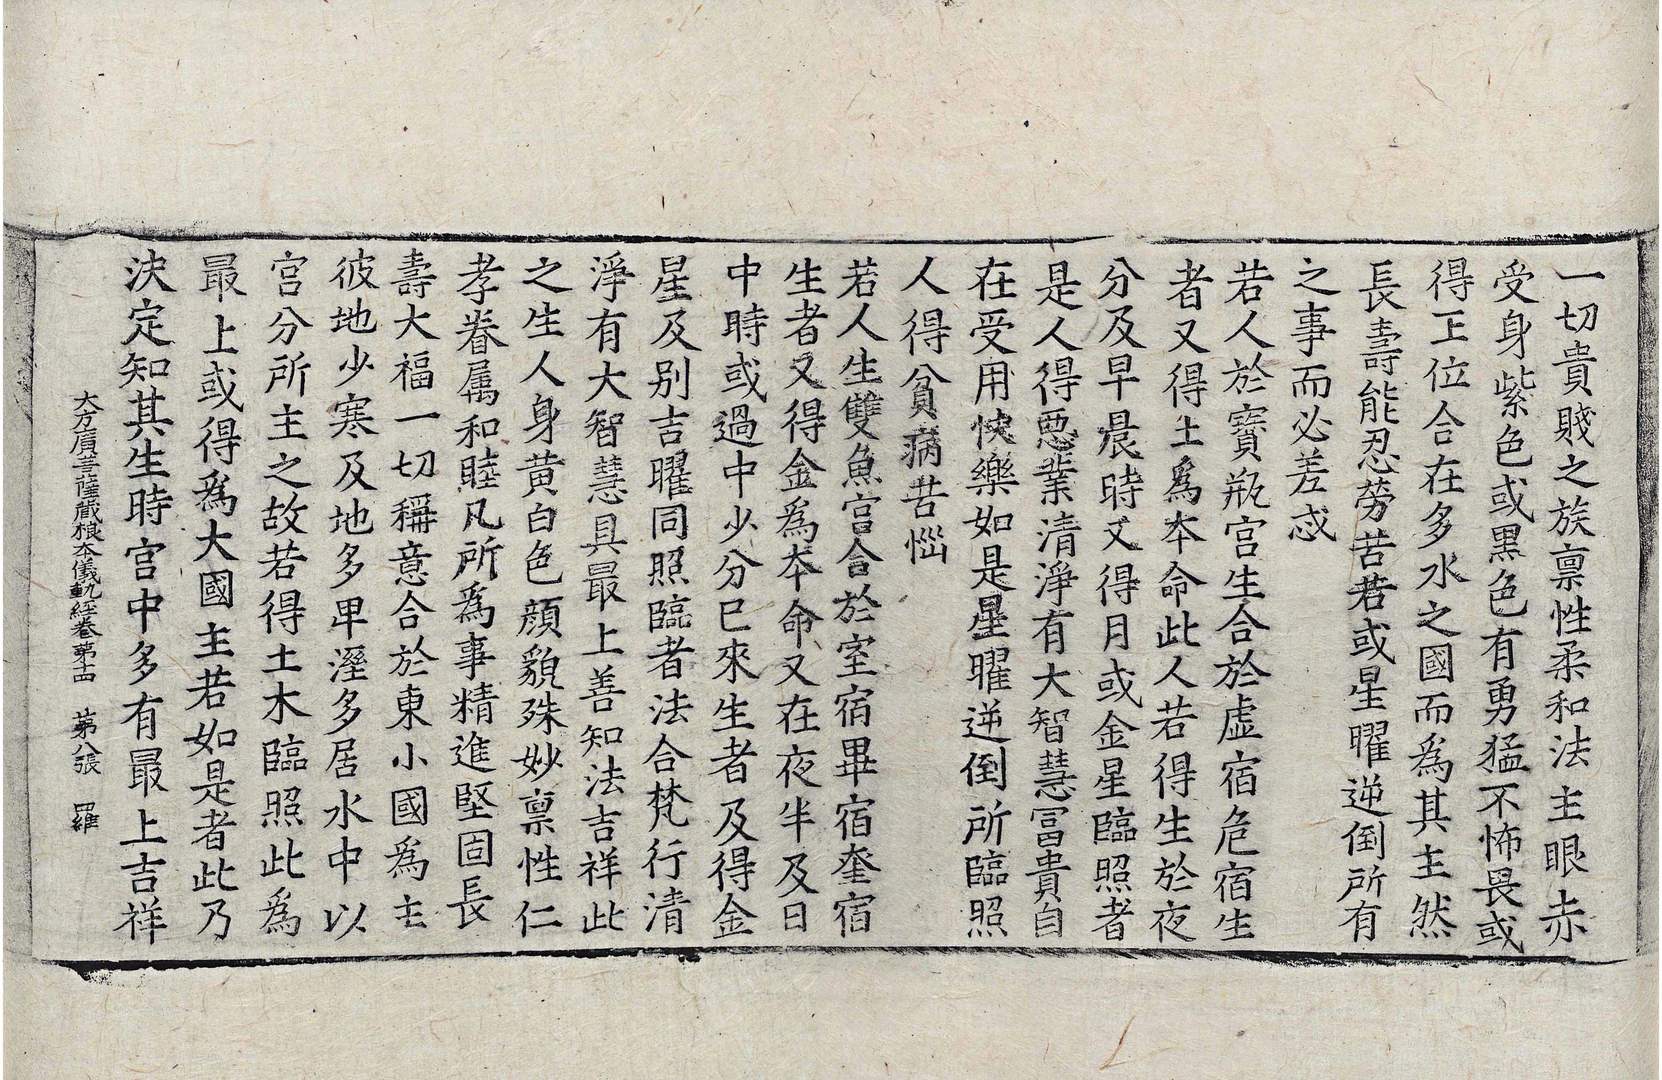 一切貴賤之族禀性柔和法主眼赤
受身紫色或黑色有勇猛不怖畏或
得王位合在多水之國而為其主然
長壽能忍勞苦若或星曜逆倒所有
之事而必差忒
若人於寶瓶宮生合於虛宿危宿生
者又得土爲本命此人若得生於夜
分及早晨時又得月或金星臨照者
是人得惡業清淨有大智慧冨貴自
在受用快樂如是星曜逆倒所臨照
人得貧病苦惱
若人生雙魚宮合於室宿畢宿奎宿
生者又得金爲本命又在夜半及日
中時或過中少分已來生者及得金
星及別吉曜同照臨者法合梵行清
淨有大智慧具最上善知法吉祥此
之生人身黃白色顔貌殊妙禀性仁
孝眷属和睦凡所爲事精進堅固長
壽大福一切稱意合於東小國為主
彼地少寒及地多卑溼多居水中以
宮分所主之故若得土木臨照此為
最上或得爲大國主若如是者此乃
決定知其生時宮中多有最上吉祥
大方廣菩薩藏根本儀軌經卷第十四　第八張　羅